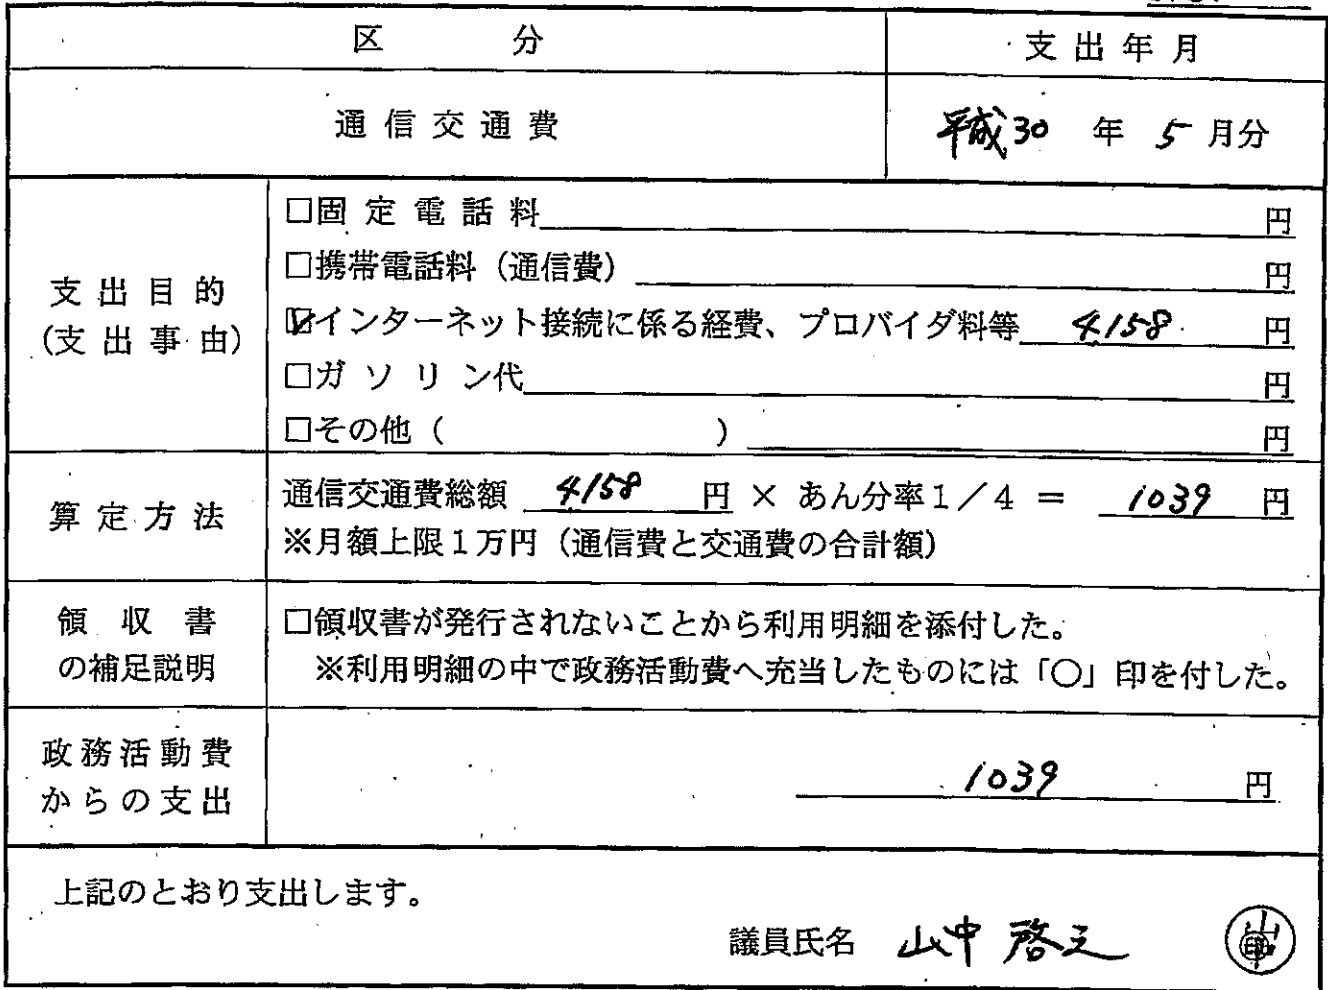 区 分
支出年月
通信交通費
平成30 年 5 月分
支出目的
(支出事由)
□固定電話料 円
□携帯電話料(通信費) 円
☑インターネット接続に係る経費、プロバイダ料等 4158 円
□ガソリン代 円
□その他( ) 円
算定方法
通信交通費総額 4158 円 × あん分率1/4 = 1039 円
※月額上限1万円(通信費と交通費の合計額)
領収書
の補足説明
□領収書が発行されないことから利用明細を添付した。
※利用明細の中で政務活動費へ充当したものには「○」印を付した。
政務活動費
からの支出
1039 円
上記のとおり支出します。
議員氏名 山中 啓之